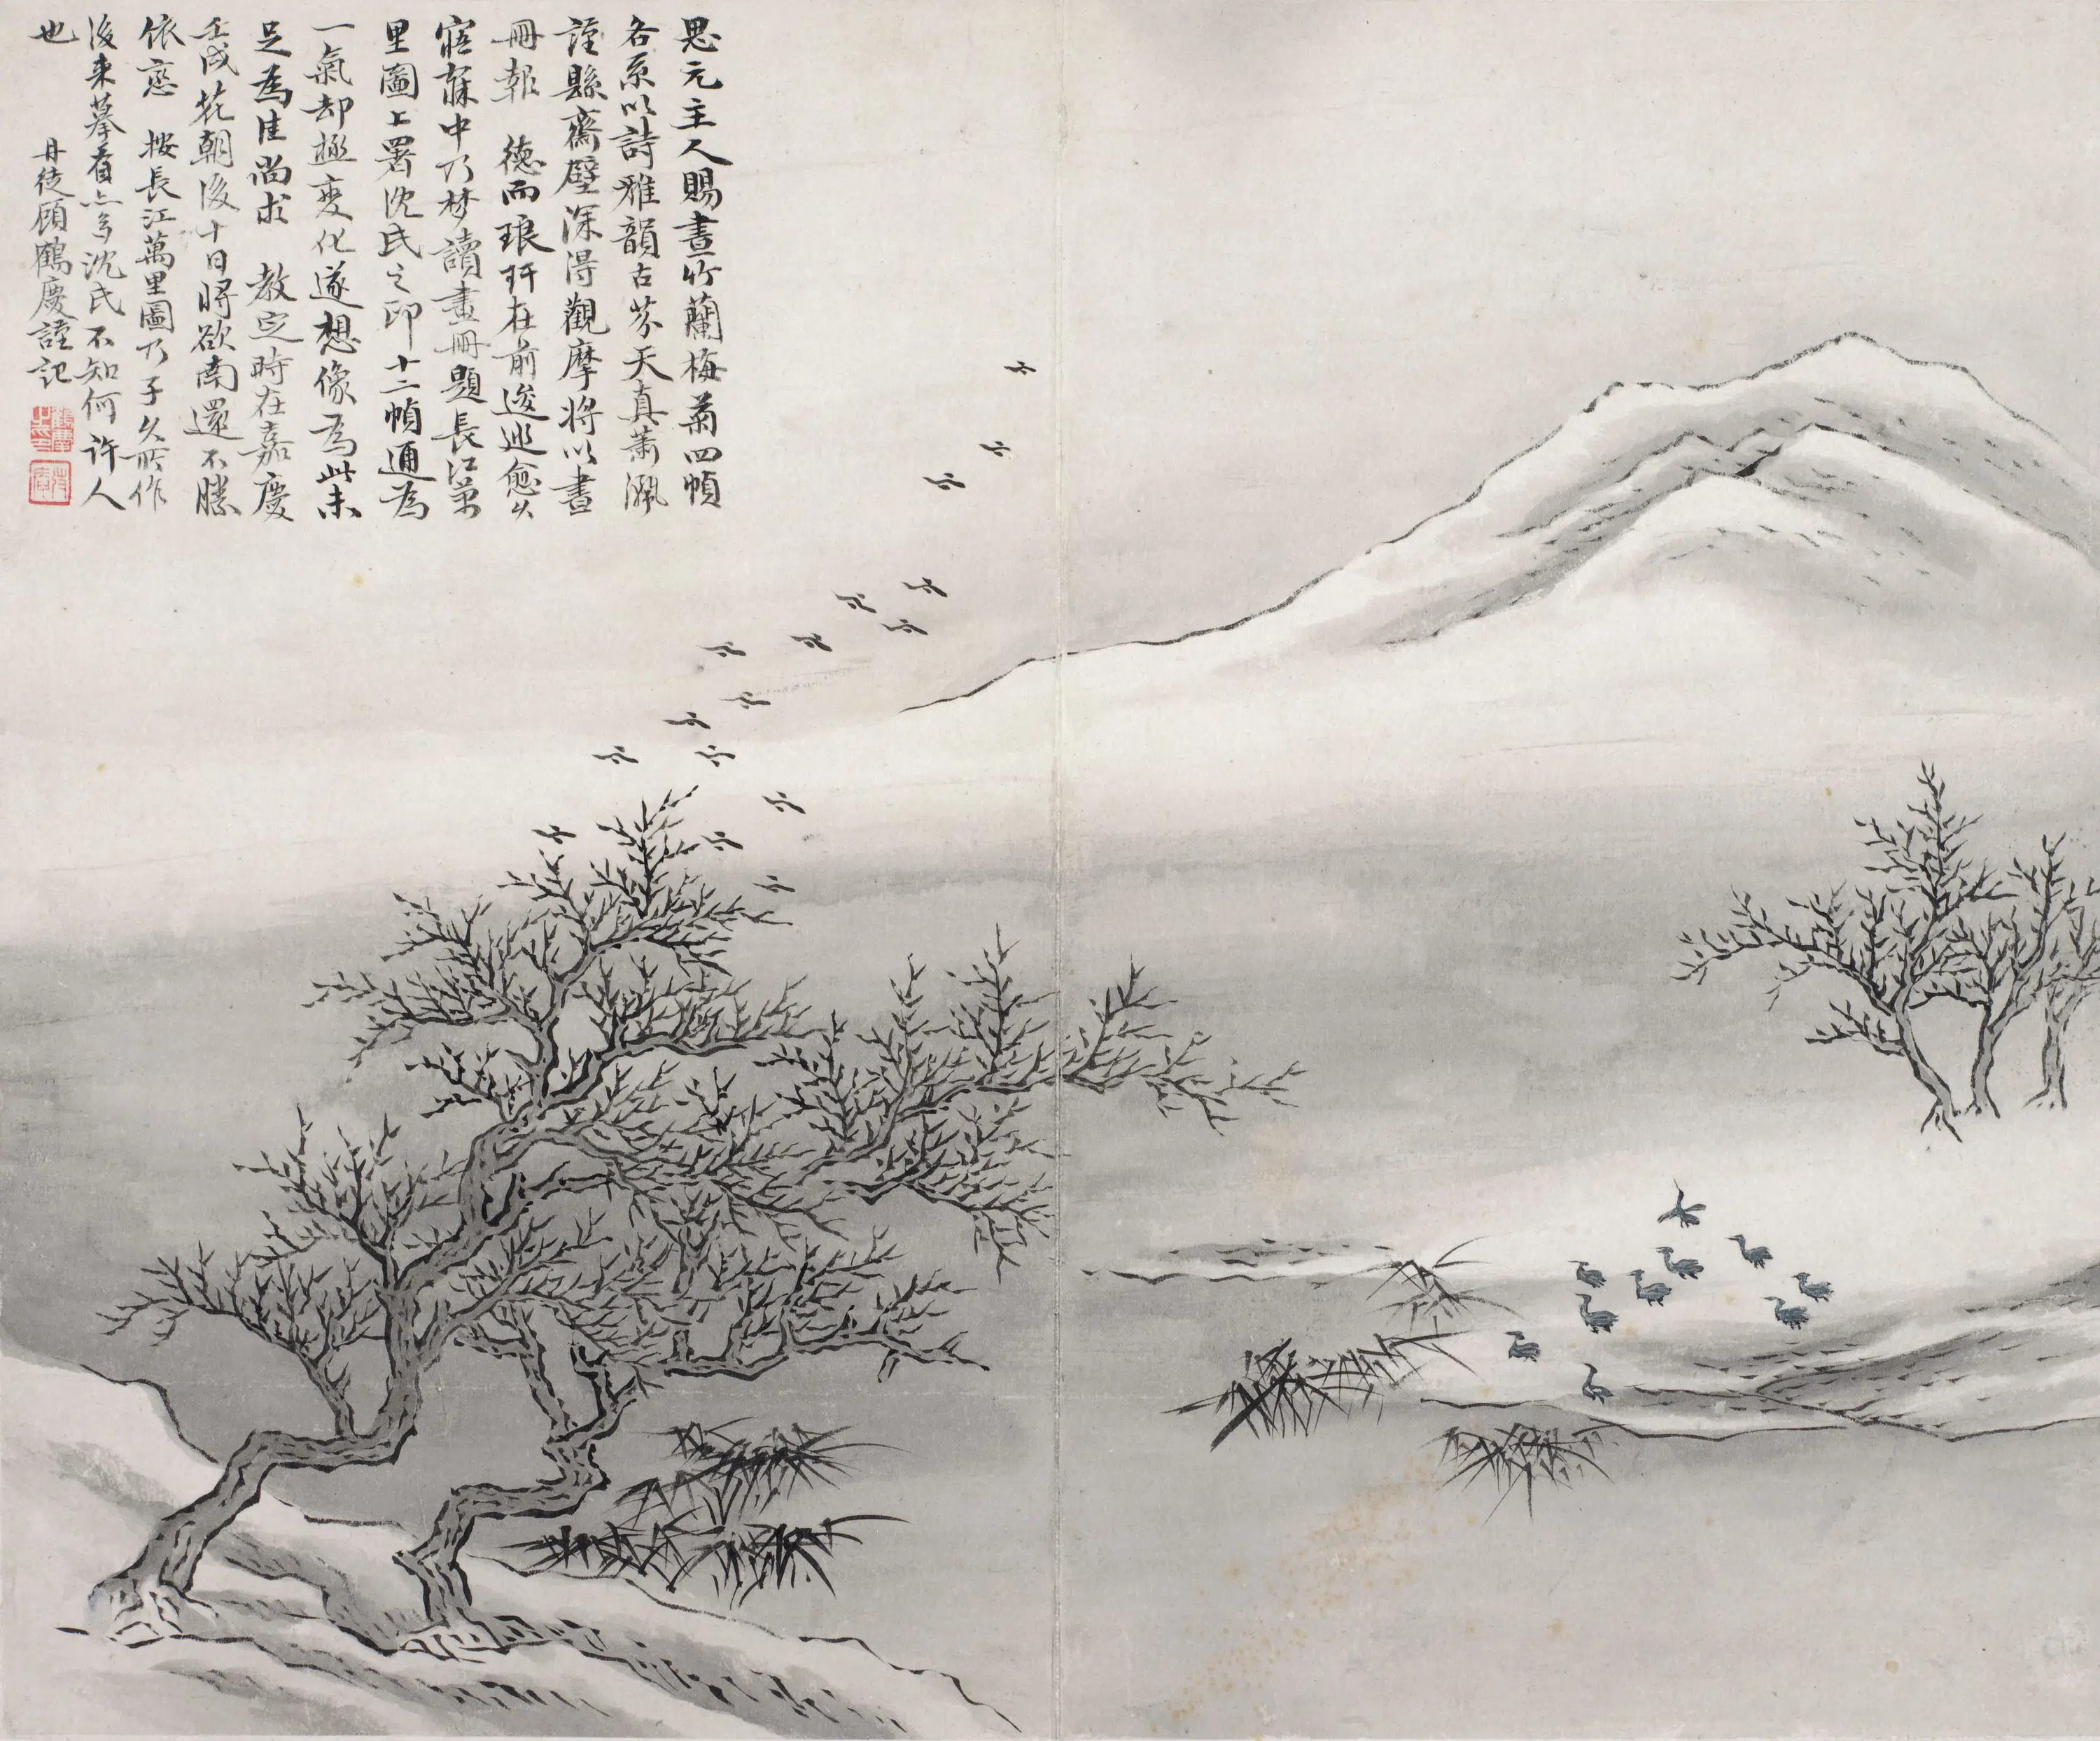 思元主人賜畫竹蘭梅菊四幀
各系以詩雅韻古芬天真蕭渢
謹縣齋壁深得觀摩將以畫
冊報 德而琅玕在前逡巡愈久
寤寐中乃夢讀畫冊題長江萬
里圖上署沈氏之印十二幀通為
一氣却極變化遂想像為此未
足為佳尚求 教定時在嘉慶
壬戌花朝後十日將欲南還不勝
依戀 按長江萬里圖乃子久所作
後来摹者亦多沈氏不知何許人
也
丹徒顧鶴慶謹記